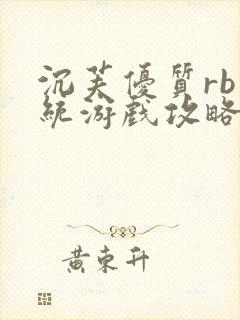 沉芙優質rb
統游戲攻略
黄東升